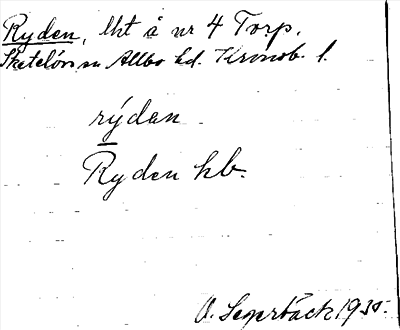 Ryden, lht å nr 4 Torp.
Skatelövs sn Allbo hd. Kronob. l.
rýdan
Ryden kb.
O. Segerbäck 1930.